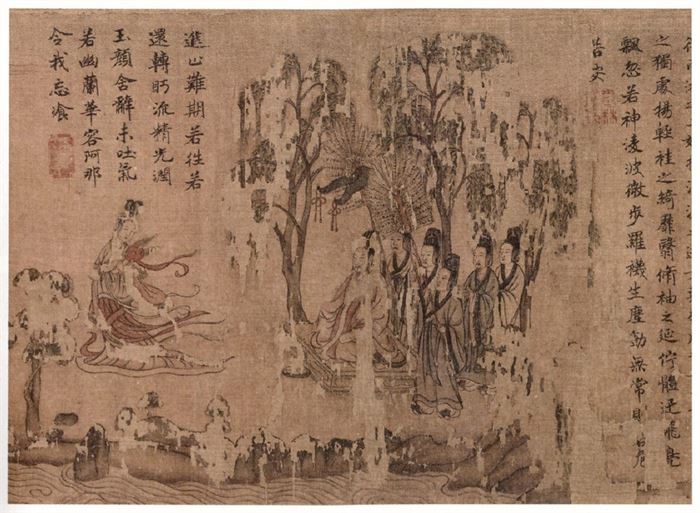 之獨處揚輕袿之綺靡翳脩袖之延佇體迅飛鳧
飄忽若神淩波微步羅襪生塵動無常則若危
若安
進止難期若往若
還轉眄流精光潤
玉顏含辭未吐氣
若幽蘭華容阿那
令我忘飡